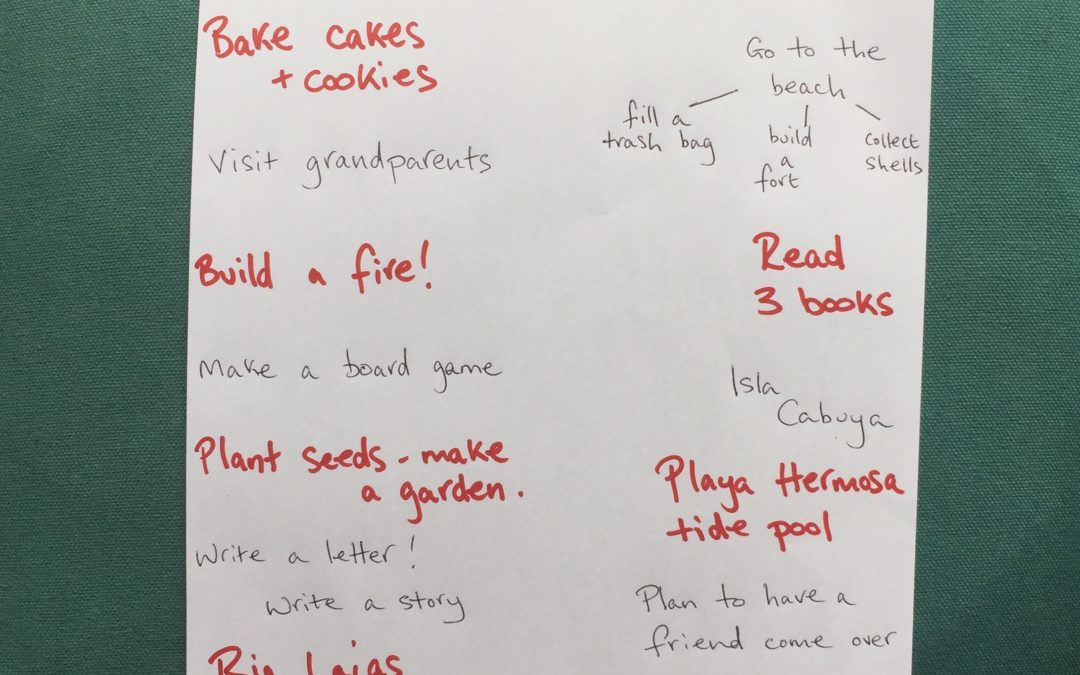 Bake cakes
+ cookies
Visit grandparents
Build a fire!
Make a board game
Plant seeds - make
a garden.
Write a letter!
Write a story
Go to the
beach
fill a
trash bag
build
a
fort
collect
shells
Read
3 books
Isla
Cabuya
Playa Hermosa
tide pool
Plan to have a
friend come over